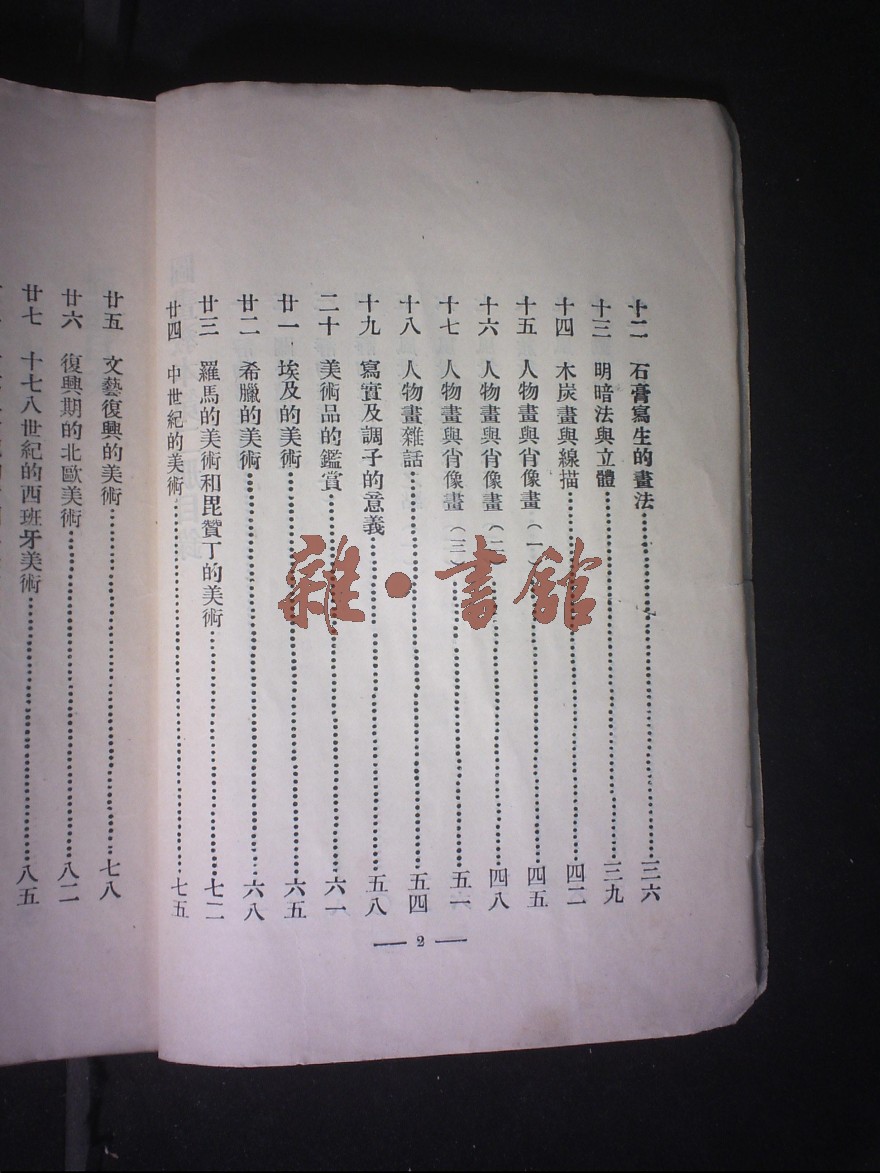 十二 石膏寫生的畫法……三六
十三 明暗法與立體……三九
十四 木炭畫與線描……四二
十五 人物畫與肖像畫（一）……四五
十六 人物畫與肖像畫（二）……四八
十七 人物畫與肖像畫（三）……五一
十八 人物畫雜話……五四
十九 寫實及調子的意義……五八
二十 美術品的鑑賞……六一
廿一 埃及的美術……六五
廿二 希臘的美術……六八
廿三 羅馬的美術和毘贊丁的美術……七二
廿四 中世紀的美術……七五
— 2 —
廿五 文藝復興的美術……七八
廿六 復興期的北歐美術……八二
廿七 十七八世紀的西班牙美術……八五
雜·書館